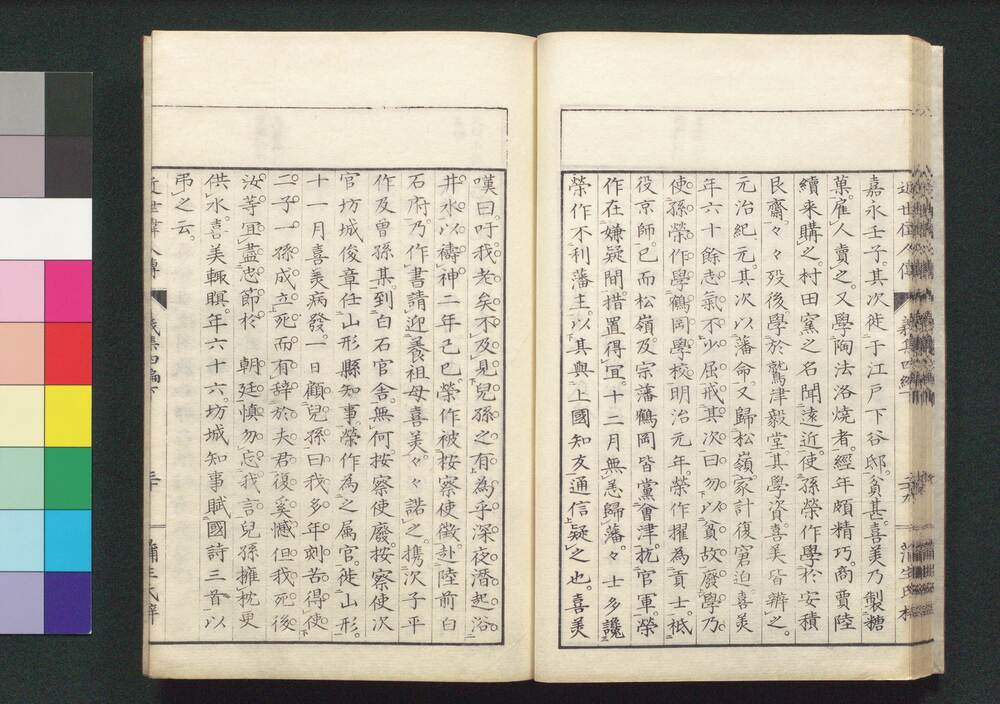 嘉永壬子。其次徙于江戸下谷邸。貧甚。喜美乃製糖
菓。雇人賣之。又學陶法洛燒者。經年頗精巧。商賈陸
續来購之。村田窯之名聞遠近。使孫榮作學於安積
艮齋。々々歿後。學於鷲津毅堂。其學資喜美皆辨之。
元治紀元。其次以藩命又歸松嶺。家計復窘迫。喜美
年六十餘。志氣不少屈。戒其次曰。勿以貧故廢學。乃
使孫榮作學鶴岡學校。明治元年。榮作擢為貢士。祗
役京師。已而松嶺及宗藩鶴岡皆黨會津。抗官軍。榮
作在嫌疑間。措置得宜。十二月無恙歸藩。々士多讒
榮作不利藩主。以其與上國知友通信疑之也。喜美
嘆曰。吁。我老矣。不及見兒孫之有為乎。深夜潛起。浴
井水以禱神。二年己巳。榮作被按察使徵。赴陸前白
石府。乃作書請迎養祖母喜美。々々諾之。携次子平
作及曾孫某。到白石官舎。無何。按察使廢。按察使次
官坊城俊章任山形縣知事。榮作為之属官。徙山形。
十一月喜美病發。一日顧兒孫曰。我多年刻苦。得使
二子一孫成立。死而有辞於夫君。復奚憾。但我死後
汝等宜盡忠節於　朝廷。慎勿忘我言。兒孫擁枕更
供水。喜美輙瞑。年六十六。坊城知事賦國詩三首以
弔之云。
近世偉人傳　義集四編下　三十　蒲生氏梓